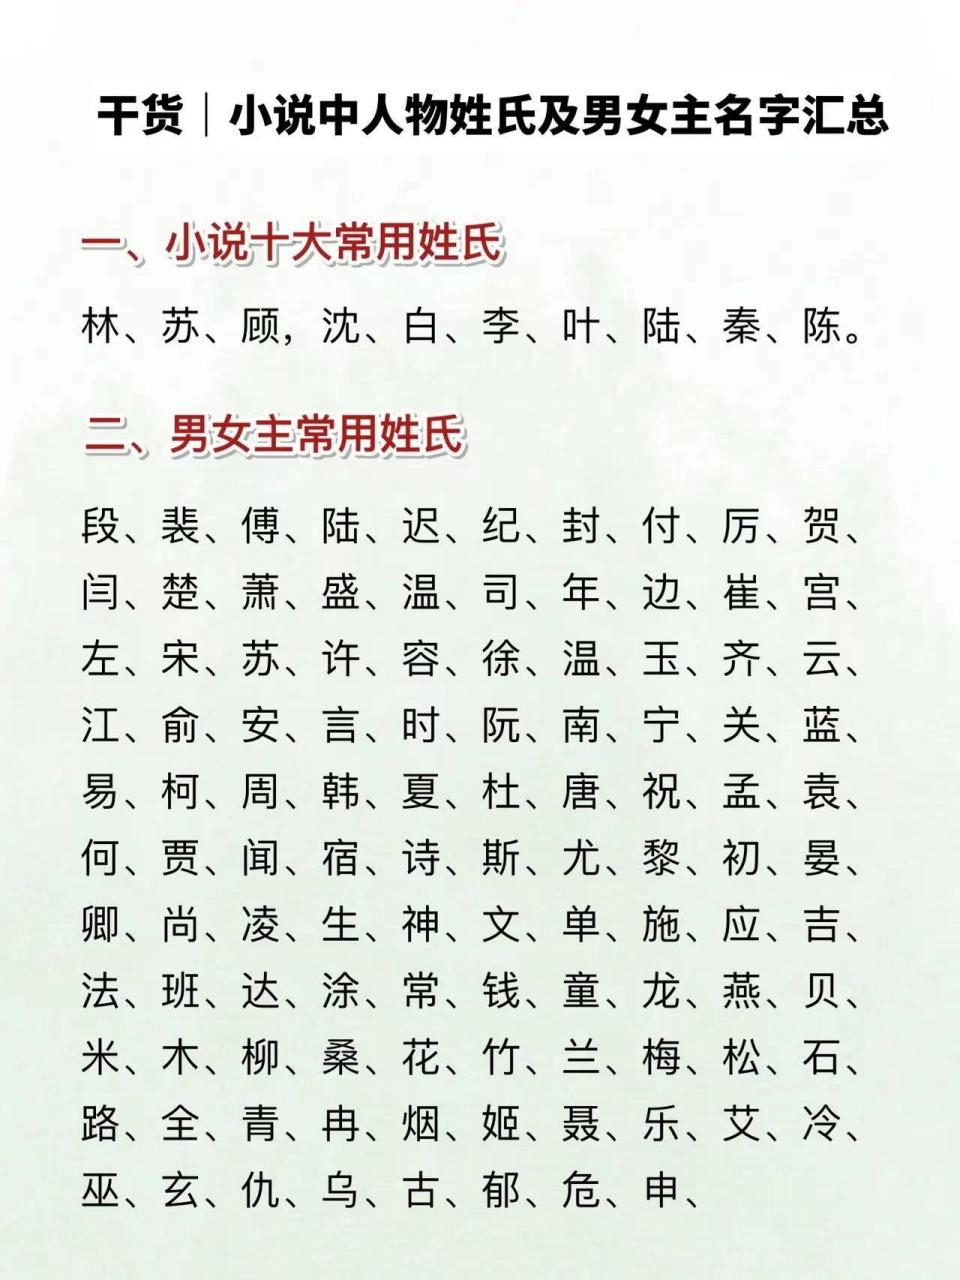 干货｜小说中人物姓氏及男女主名字汇总
一、小说十大常用姓氏
林、苏、顾，沈、白、李、叶、陆、秦、陈。
二、男女主常用姓氏
段、裴、傅、陆、迟、纪、封、付、厉、贺、
闫、楚、萧、盛、温、司、年、边、崔、宫、
左、宋、苏、许、容、徐、温、玉、齐、云、
江、俞、安、言、时、阮、南、宁、关、蓝、
易、柯、周、韩、夏、杜、唐、祝、孟、袁、
何、贾、闻、宿、诗、斯、尤、黎、初、晏、
卿、尚、凌、生、神、文、单、施、应、吉、
法、班、达、涂、常、钱、童、龙、燕、贝、
米、木、柳、桑、花、竹、兰、梅、松、石、
路、全、青、冉、烟、姬、聂、乐、艾、冷、
巫、玄、仇、乌、古、郁、危、申、